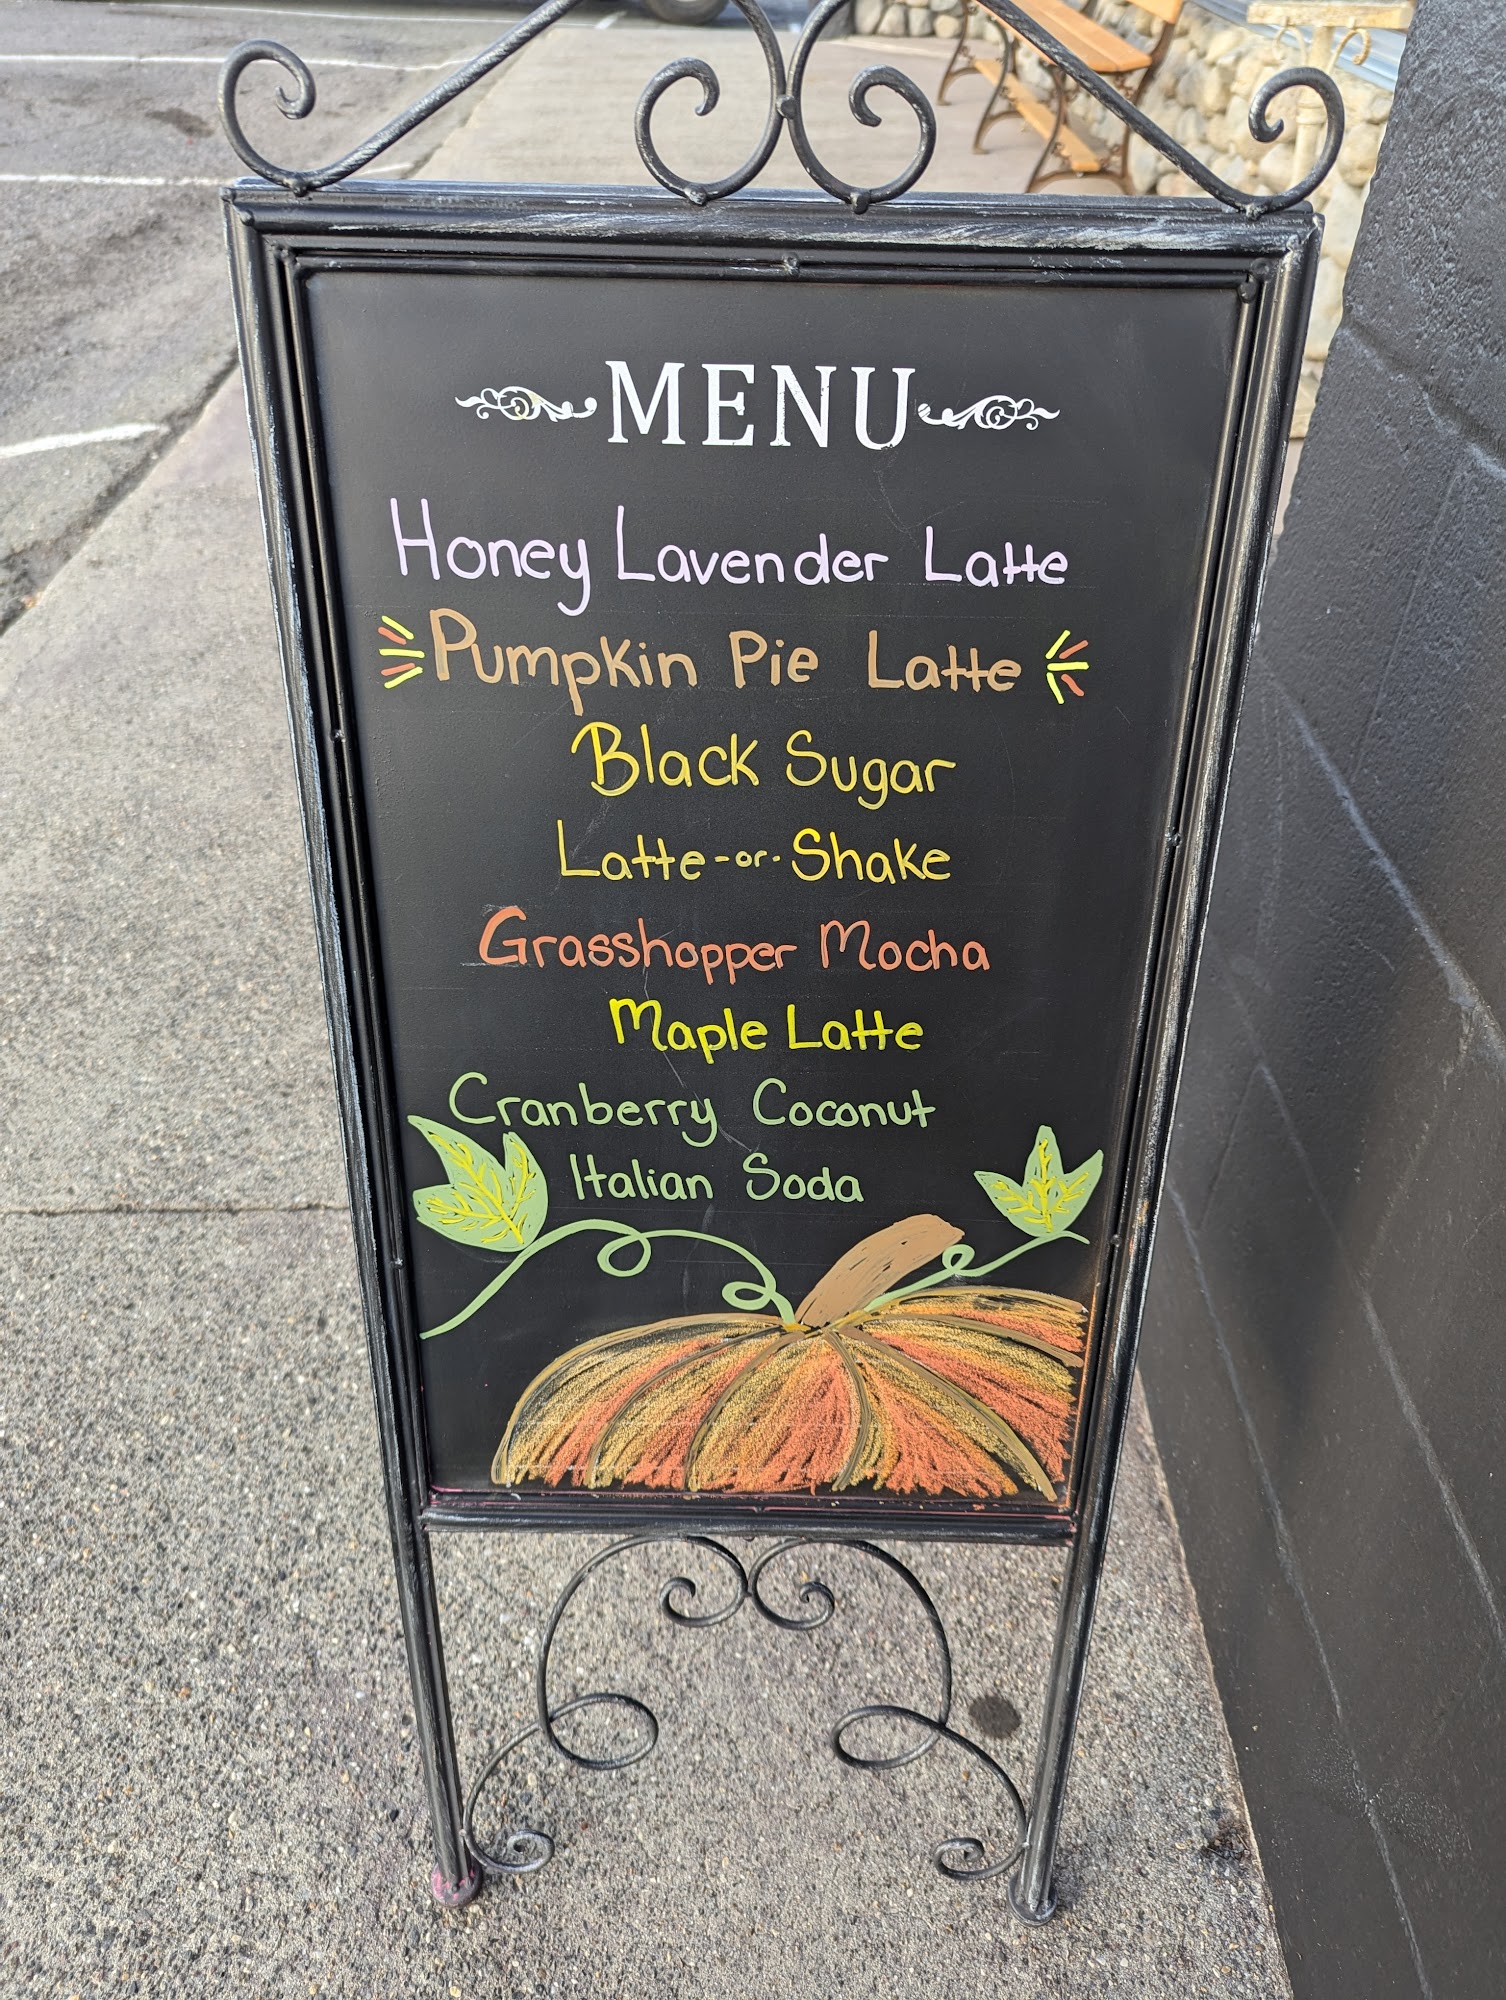 MENU
Honey Lavender Latte
Pumpkin Pie Latte
Black Sugar
Latte -or- Shake
Grasshopper Mocha
Maple Latte
Cranberry Coconut
Italian Soda